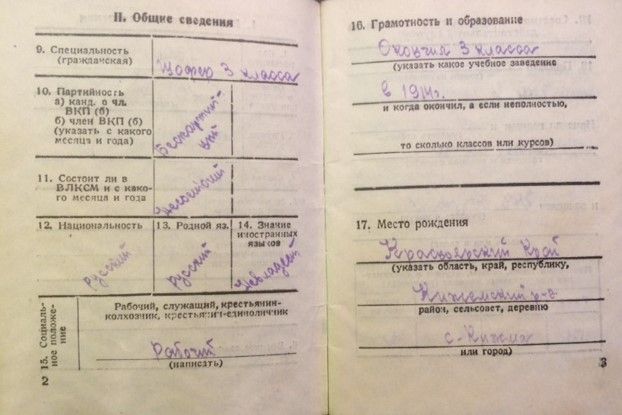 II. Общие сведения
9. Специальность
(гражданская)
Шофер 3 класса
10. Партийность
а) канд. о чл.
ВКП (б)
б) член ВКП (б)
(указать с какого
месяца и года)
Беспартий-
ный
11. Состоит ли в
ВЛКСМ и с како-
го месяца и года
12. Национальность
Русский
13. Родной яз.
Русский
14. Знание
иностранных
языков
15. Социаль-
ное положе-
ние
Рабочий, служащий, крестьянин-
колхозник, крестьянин-единоличник
Рабочий
(написать)
2
16. Грамотность и образование
Окончил 3 класса
(указать какое учебное заведение
и когда окончил, а если неполностью,
то сколько классов или курсов)
17. Место рождения
Красноярский Край
(указать область, край, республику,
Кежемский р-н
район, сельсовет, деревню
с. Кежма
или город)
3